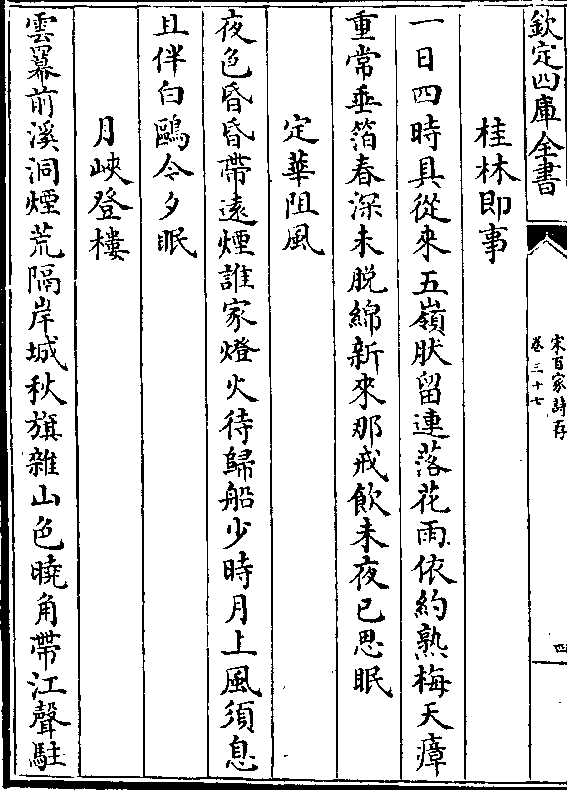 欽定四庫全書
宋百家詩存
卷三十七
四
桂林即事
一日四時具從來五嶺肰留連落花雨依約熟梅天瘴
重常垂箔春深未脱綿新來那戒飲未夜已思眠
定華阻風
夜色昏昏帶遠煙誰家燈火待歸船少時月上風須息
且伴白鷗令夕眠
月峽登樓
雲羃前溪洞煙荒隔岸城秋旗雜山色曉角帶江聲駐